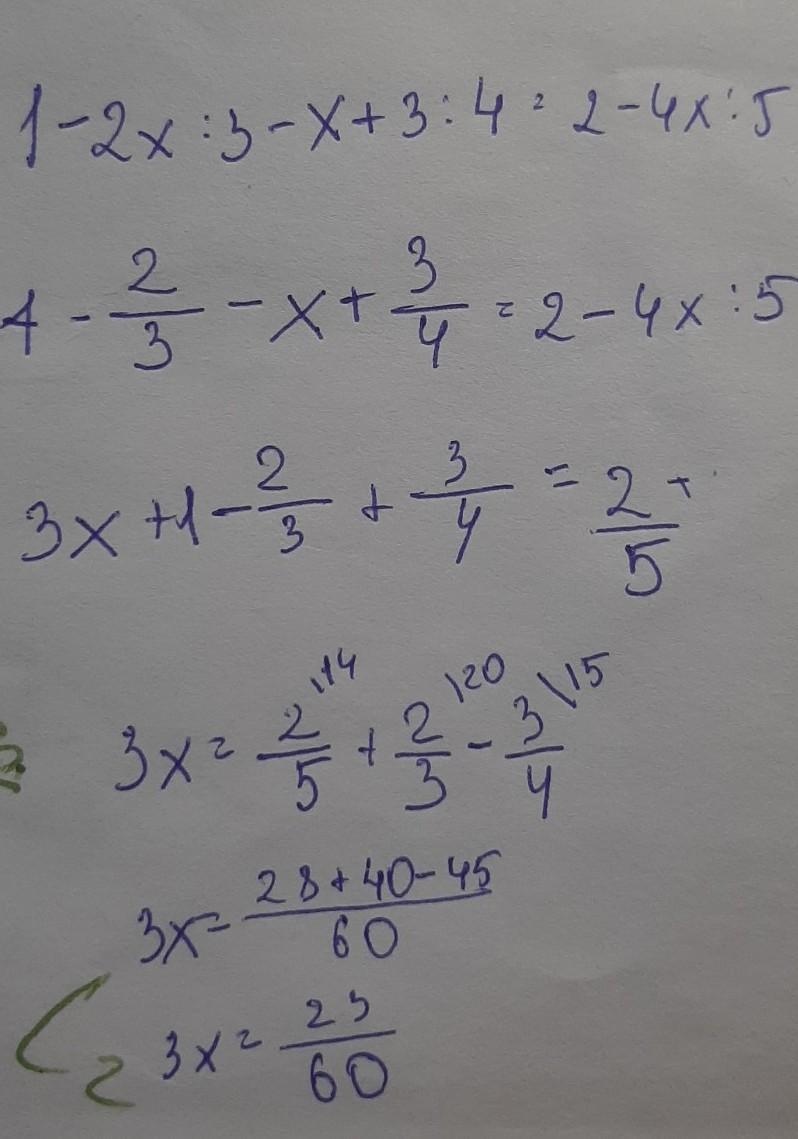 1-2x:3-x+3:4=2-4x:5
1-2/3-x+3/4=2-4x:5
3x+1-2/3+3/4=2+/5
3x=2/5\14+2/3\20-3/4\15
3x=28+40-45/60
3x=23/60
2